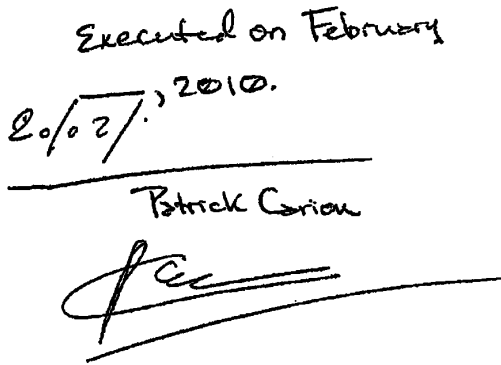 Executed on February
20/02/., 2010.
Patrick Carion